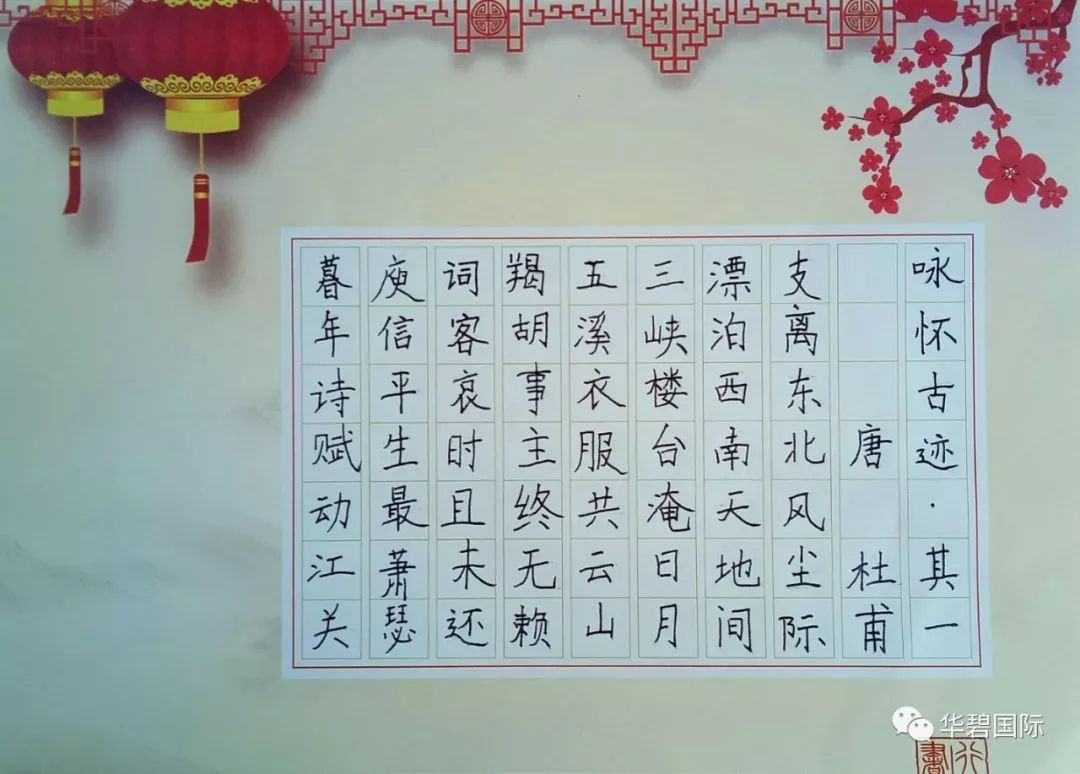 咏怀古迹·其一
唐 杜甫
支离东北风尘际
漂泊西南天地间
三峡楼台淹日月
五溪衣服共云山
羯胡事主终无赖
词客哀时且未还
庾信平生最萧瑟
暮年诗赋动江关
华碧国际